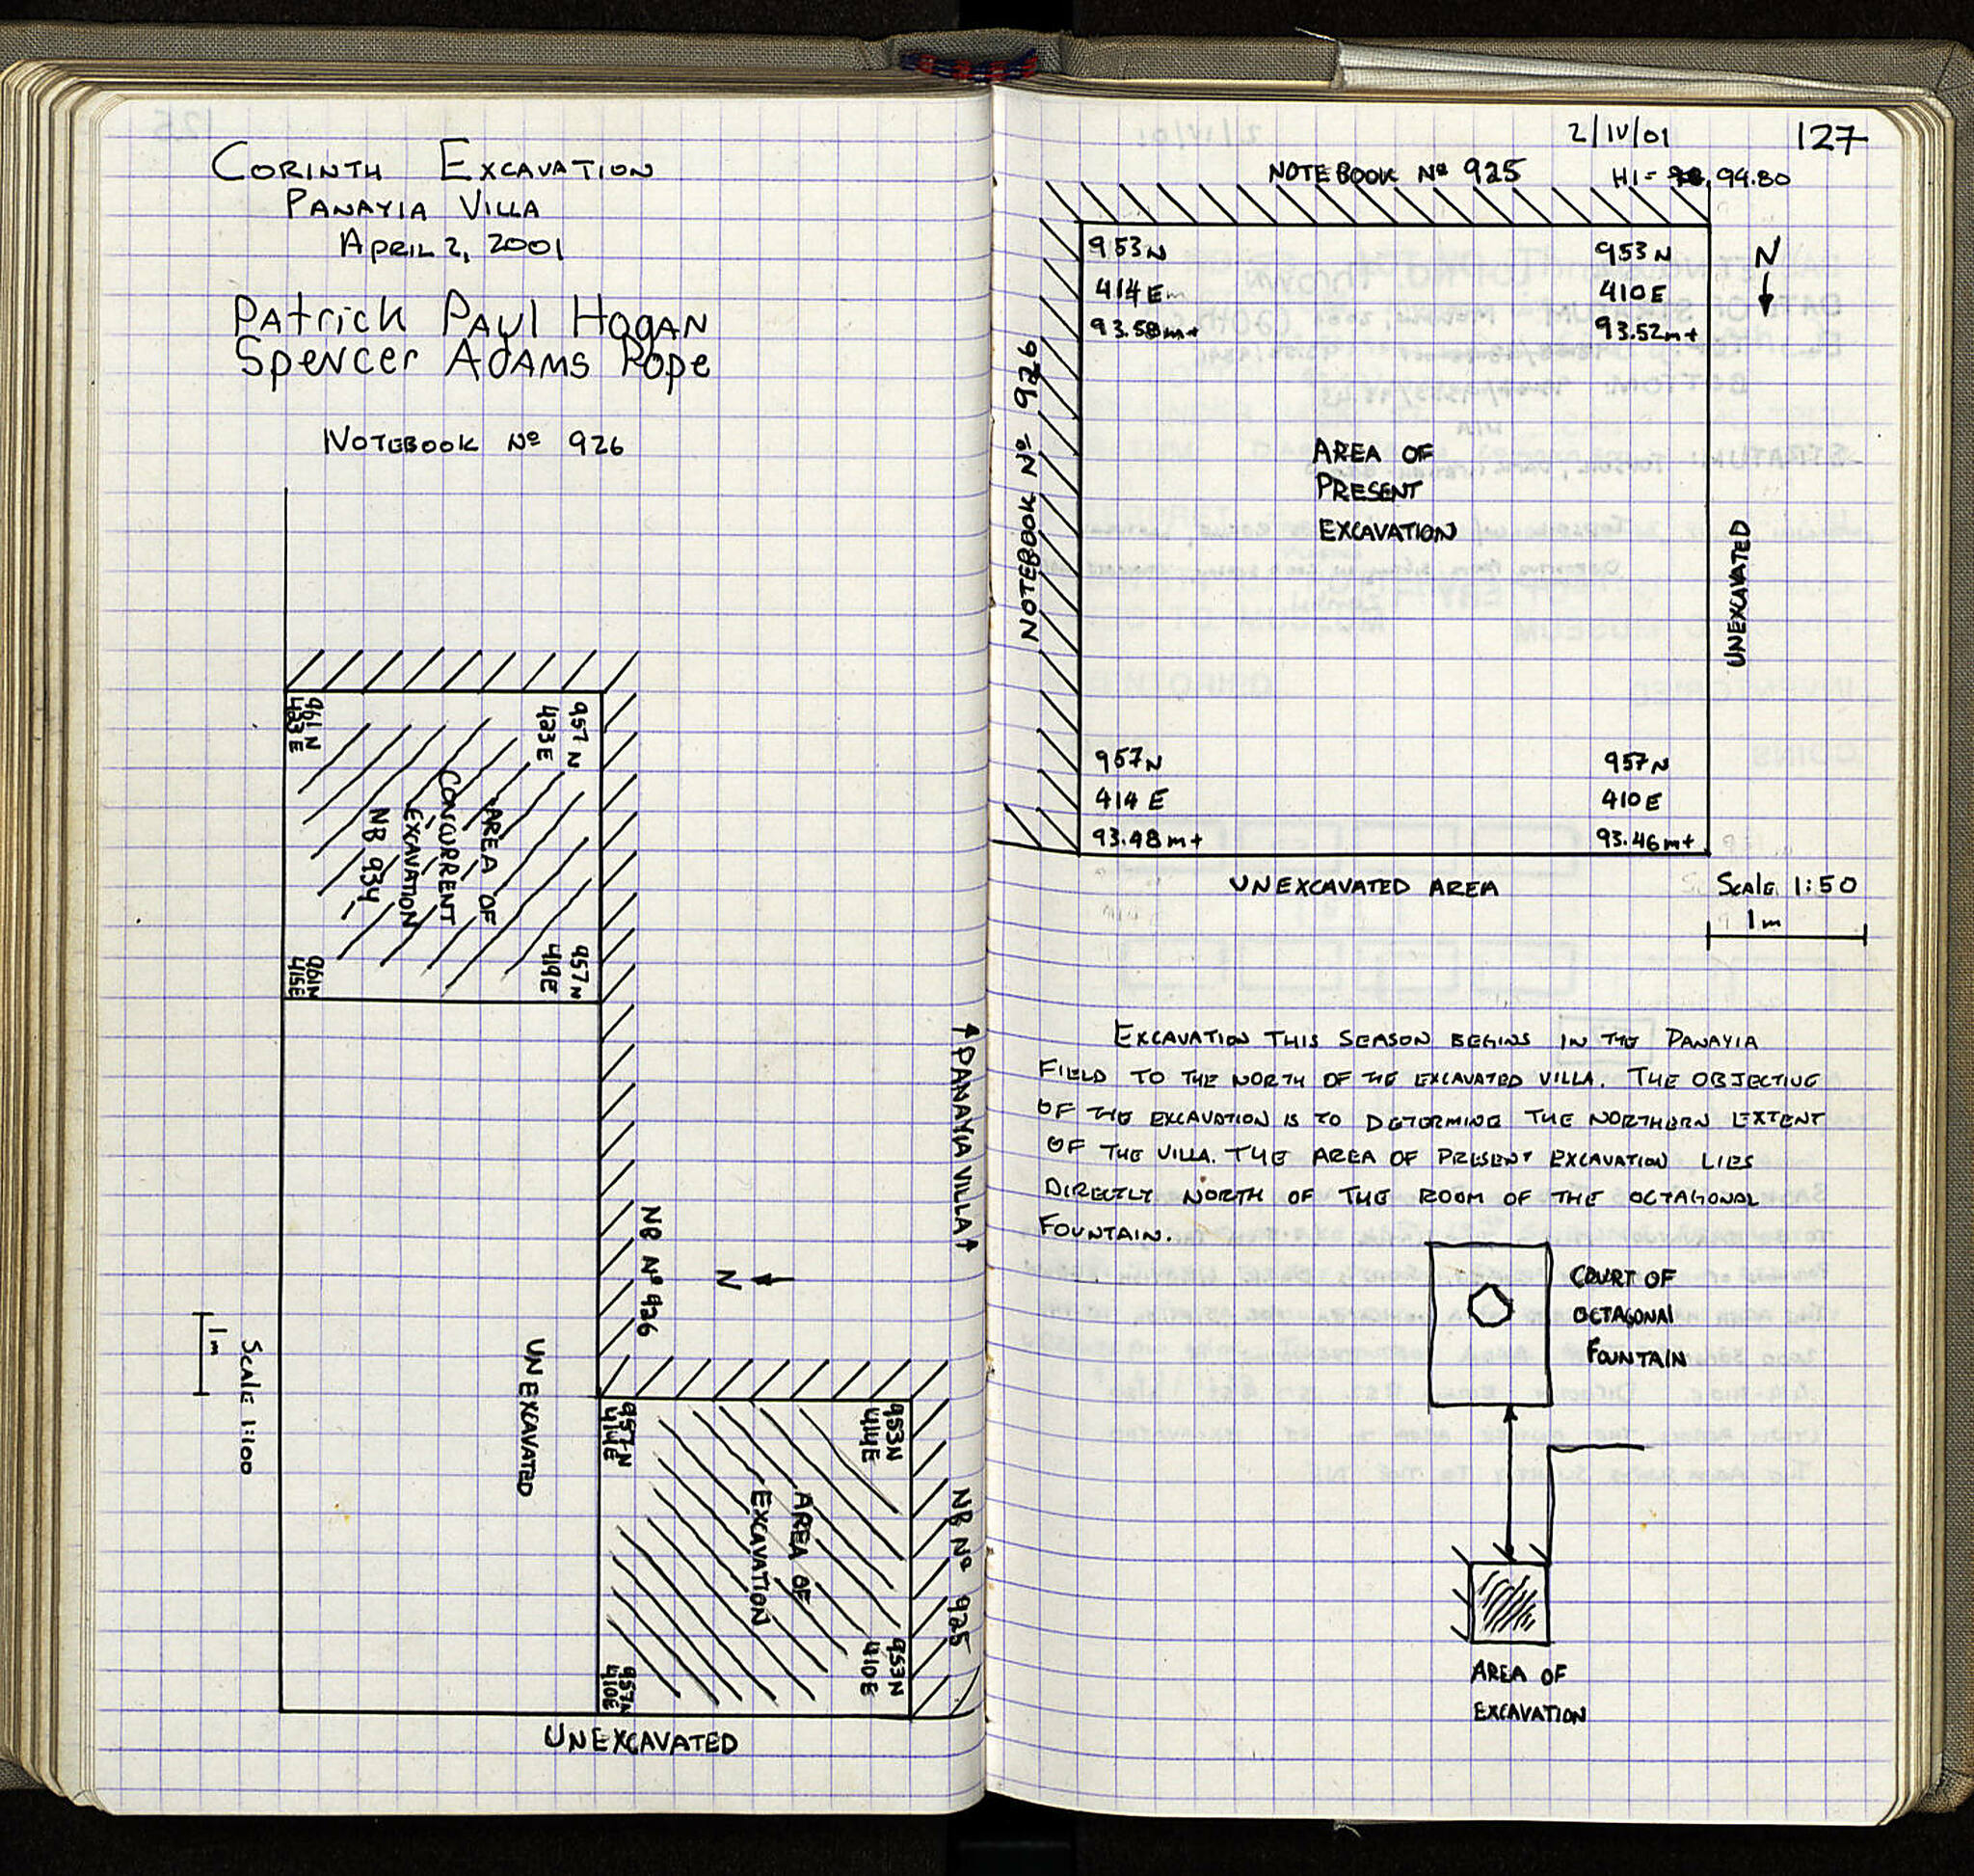 CORINTH EXCAVATION
PANAYIA VILLA
APRIL 2, 2001
Patrick Paul Hogan
Spencer Adams Pope
NOTEBOOK Nº 926
961 N
423 E
957 N
423 E
AREA OF
CONCURRENT
EXCAVATION
NB 934
961N
415E
957 N
419E
↑ PANAYIA VILLA ↑
NB Nº 926
N
UNEXCAVATED
1m
Scale 1:100
957 N
414E
953N
414E
AREA OF
EXCAVATION
NB Nº 925
957N
410E
953N
410E
UNEXCAVATED
2/IV/01
127
NOTEBOOK Nº 925
HI= 94.80
953 N
414 E
93.58m+
953 N
410 E
93.52m+
N
NOTEBOOK Nº 926
AREA OF
PRESENT
EXCAVATION
UNEXCAVATED
957 N
414 E
93.48m+
957 N
410 E
93.46m+
UNEXCAVATED AREA
Scale 1:50
1m
EXCAVATION THIS SEASON BEGINS IN THE PANAYIA
FIELD TO THE NORTH OF THE EXCAVATED VILLA. THE OBJECTIVE
OF THE EXCAVATION IS TO DETERMINE THE NORTHERN EXTENT
OF THE VILLA. THE AREA OF PRESENT EXCAVATION LIES
DIRECTLY NORTH OF THE ROOM OF THE OCTAGONAL
FOUNTAIN.
COURT OF
OCTAGONAL
FOUNTAIN
AREA OF
EXCAVATION